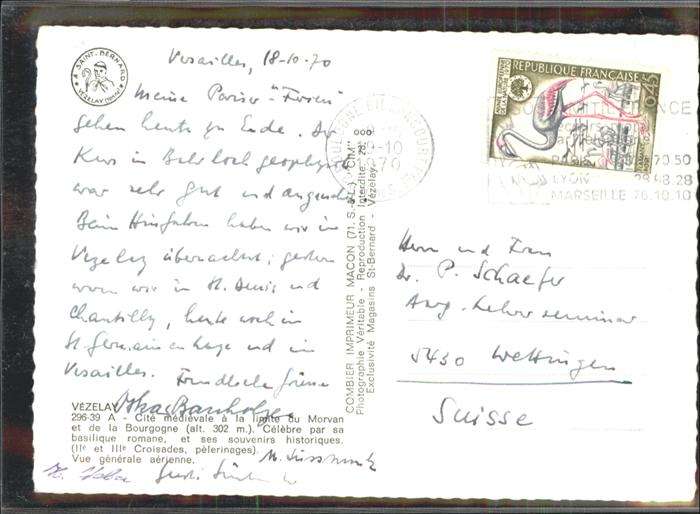 SAINT-BERNARD
VÉZELAY
Versailles, 18-10-70
Meine Pariser-"Ferien"
gehen heute zu Ende. Der
Kurs in
war sehr gut und angenehm.
Beim Hinfahren haben wir in
Vezelay übernachtet; gestern
waren wir in St. Denis und
Chantilly, heute noch in
St Germain en Laye und in
Versailles. Freundliche Grüsse
VÉZELAY
296-39 A - Cité médiévale à la limite du Morvan
et de la Bourgogne (alt. 302 m.). Célèbre par sa
basilique romane, et ses souvenirs historiques.
(IIe et IIIe Croisades, pèlerinages).
Vue générale aérienne.
COMBIER IMPRIMEUR MACON (71. S.-&-L.) "CIM"
Photographie Véritable - Reproduction Interdite
Exclusivité Magasins St-Bernard - Vézelay.
RÉPUBLIQUE FRANÇAISE
0,45
BOULOGNE BILLANCOURT
-10
1970
PARIS 70.50
LYON 28.48.28
MARSEILLE 76.10.10
Herrn und Frau
Dr. P. Schaefer
Aarg. Lehrerseminar
5430 Wettingen
Suisse